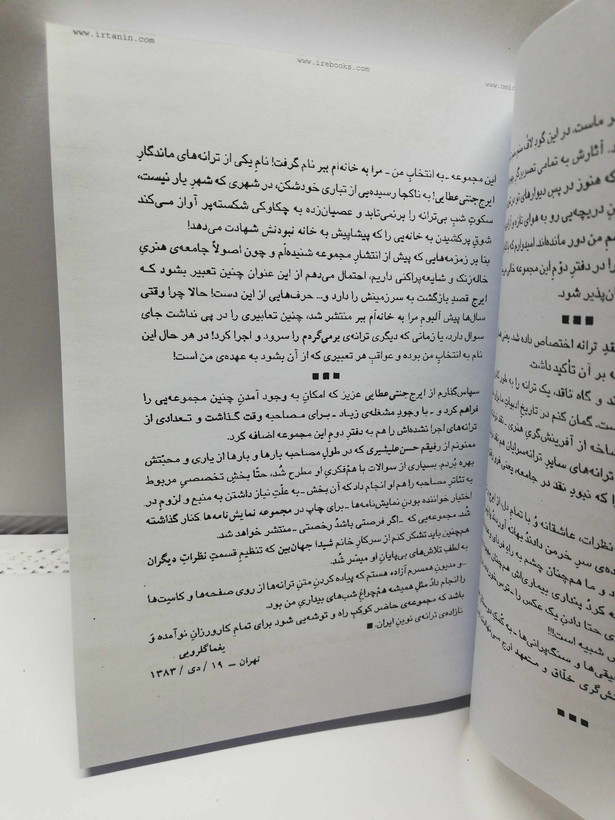 www.irtanin.com
www.irebooks.com
این مجموعه ـ به انتخابِ من ـ مرا به خانه‌اَم ببر نام گرفت! نامِ یکی از ترانه‌های ماندگارِ
ایرج جنتی‌عطایی! به ناکجا رسیده‌یی از تباری خودشکن، در شهری که شهرِ یار نیست،
سکوتِ شبِ بی‌ترانه را برنمی‌تابد و عصیان‌زده به چکاوکی شکسته‌پر آواز می‌کند
شوقِ پرکشیدن به خانه‌یی را که پیشاپیش به خانه نبودنش شهادت می‌دهد!
بنا بر زمزمه‌هایی که پیش از انتشارِ مجموعه شنیده‌اَم و چون اصولاً جامعه‌ی هنریِ
خاله‌زنک و شایعه‌پراکنی داریم، احتمال می‌دهم از این عنوان چنین تعبیر بشود که
ایرج قصدِ بازگشت به سرزمینش را دارد و... حرف‌هایی از این دست! حالا چرا وقتی
سال‌ها پیش آلبومِ مرا به خانه‌اَم ببر منتشر شد، چنین تعابیری را در پی نداشت جای
سوال دارد، یا زمانی که دیگری ترانه‌ی برمی‌گردم را سرود و اجرا کرد! در هر حال این
نام به انتخابِ من بوده و عواقبِ هر تعبیری که از آن بشود به عهده‌ی من است!
سپاس‌گذارم از ایرج جنتی‌عطایی عزیز که امکانِ به وجود آمدنِ چنین مجموعه‌یی را
فراهم کرد و ـ با وجودِ مشغله‌ی زیاد ـ برای مصاحبه وقت گذاشت و تعدادی از
ترانه‌های اجرا نشده‌اش را هم به دفترِ دومِ این مجموعه اضافه کرد.
ممنونم از رفیقم حسن‌علیشیری که در طولِ مصاحبه بارها و بارها از یاری و محبّتش
بهره بُردم. بسیاری از سوالات با هم‌فکریِ او مطرح شُد، حتّا بخشِ تخصصیِ مربوط
به تئاترِ مصاحبه را هم او انجام داد که آن بخش ـ به علّتِ نیاز داشتن به منبع و لزومِ در
اختیارِ خواننده بودنِ نمایش‌نامه‌ها ـ برای چاپ در مجموعه نمایش‌نامه‌ها کنار گذاشته
شُد مجموعه‌یی که ـ اگر فرصتی باشدُ رخصتی ـ منتشر خواهد شد.
هم‌چنین باید تشکر کنم از سرکارِ خانم شیدا جهان‌بین که تنظیمِ قسمتِ نظراتِ دیگران
به لطفِ تلاش‌های بی‌پایانِ او میسّر شُد.
و مدیونِ همسرم آزاده هستم که پیاده کردنِ متنِ ترانه‌ها از روی صفحه‌ها و کاسیت‌ها
را انجام دادُ مثلِ همیشه هم‌چراغِ شب‌های بیداریِ من بود.
باشد که مجموعه‌ی حاضر کوکبِ راه و توشه‌یی شود برای تمامِ کارورزانِ نوآمده وَ
نازاده‌ی ترانه‌ی نوینِ ایران.
یغماگلرویی
تهران ـ ۱۹ / دی / ۱۳۸۳
ر ماست. در این گودِ لاف
آثارش به تمامی تصویرگرِ
که هنوز در پسِ دیوارهای
من دور مانده‌اند
در دفترِ دوّمِ این مجموعه
ان‌پذیر شود.
قدِ ترانه اختصاص داده شد،
ه بر آن تأکید داشت.
ند و گاه ناقد، یک ترانه را به طورِ
ست. گمان کنم در تاریخِ ادبیاتِ
ساخه از آفرینش‌گریِ هنری
ترانه‌های سایرِ ترانه‌سرایان
را که نبودِ نقد در جامعه
نظرات، عاشقانه